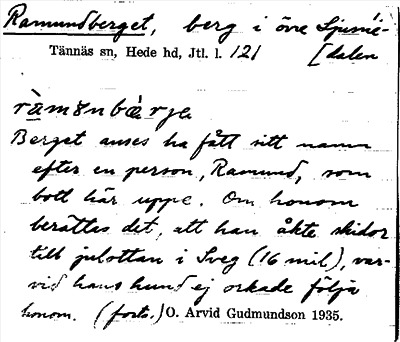 Ramundberget, berg i övre Ljusne-
Tännäs sn, Hede hd, Jtl. l. 121 [dalen
Berget anses ha fått sitt namn
efter en person, Ramund, som
bott här uppe. Om honom
berättas det, att han åkte skidor
till julottan i Sveg (16 mil), var-
vid hans hund ej orkade följa
honom. (forts.) O. Arvid Gudmundson 1935.